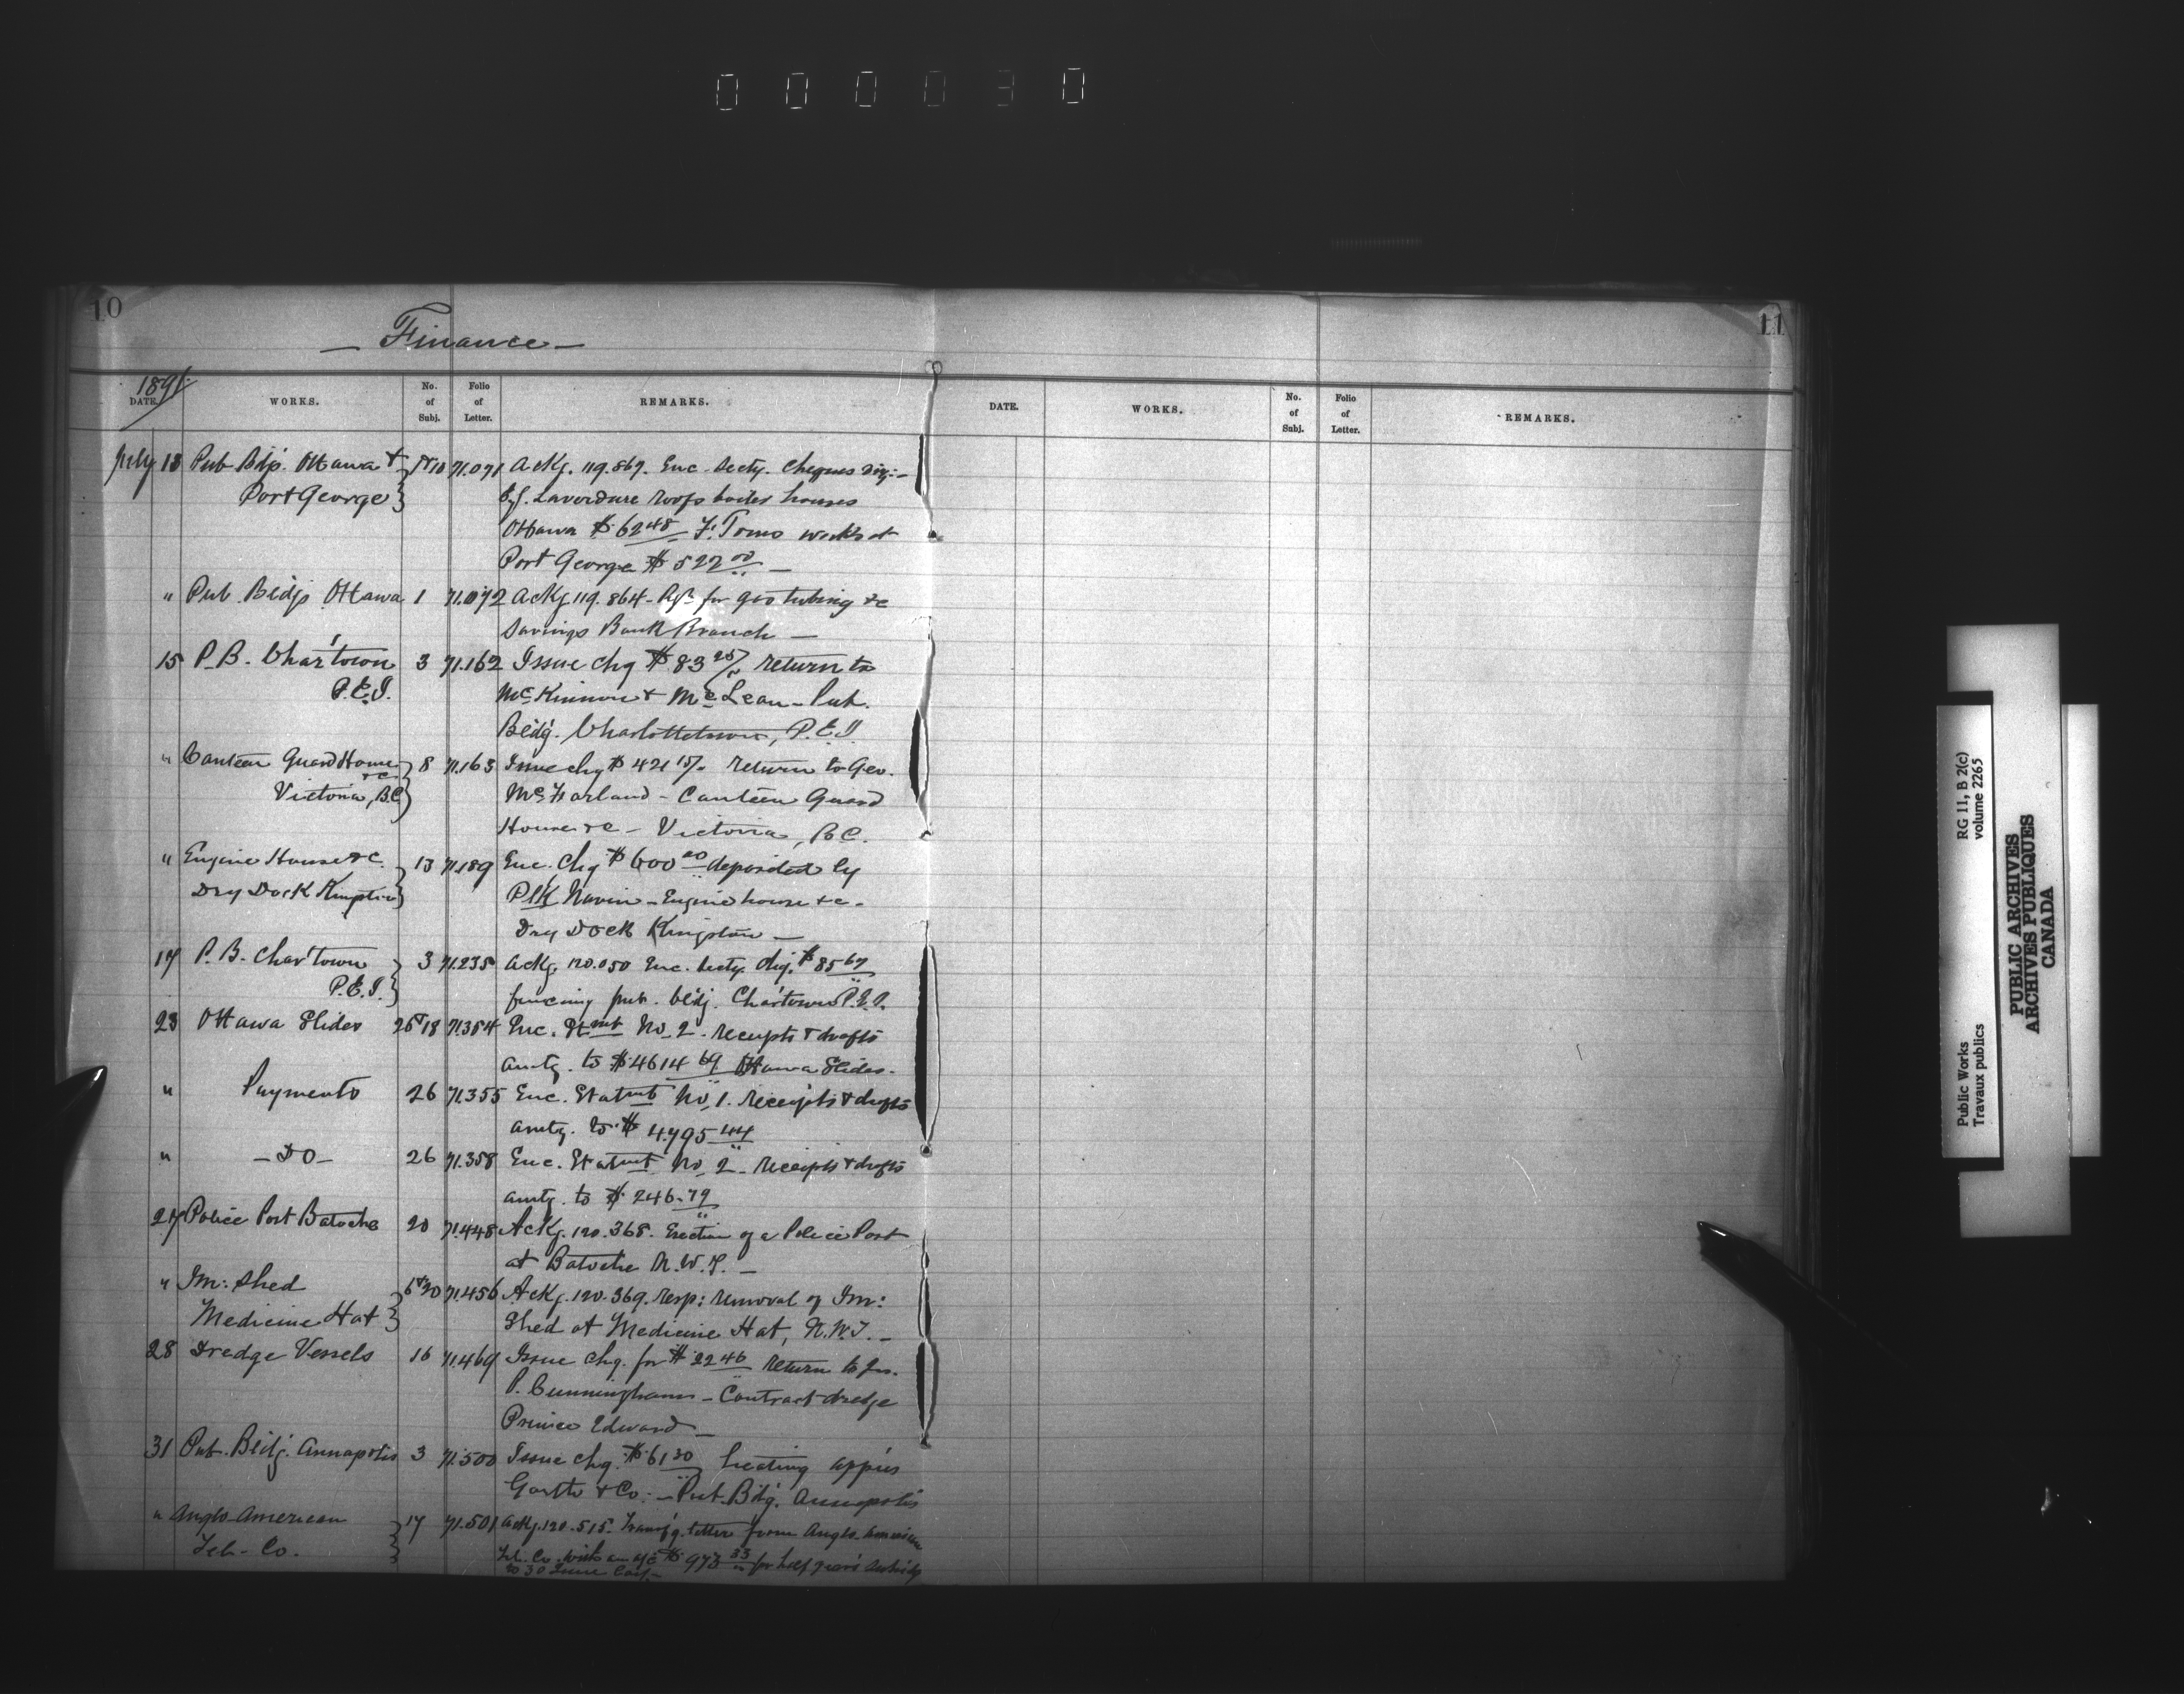 000030
10
11
— Finance —
1891
DATE. WORKS. No. of Subj. Folio of Letter. REMARKS.
DATE. WORKS. No. of Subj. Folio of Letter. REMARKS.
July 13 Pub Bdgs. Ottawa & 71.071 Ackg. 119.867. Enc. Secty. Cheques viz:—
Port George Laverdure roofs boiler houses
Ottawa $62 48 F. Toms works at
Port George $522 00 —
" Pub. Bldgs Ottawa 1 71.072 Ackg. 119.864 - for gas tubing &c
Savings Bank Branch —
15 P.B. Char'town 3 71.162 Issue chq $83 25 return to
P.E.I. McKinnon & McLean - Pub.
Bldg. Charlottetown, P.E.I.
" Canteen Guard House &c 8 71.163 Issue chq $421 return to Geo.
Victoria, B.C. McFarland - Canteen Guard
House &c - Victoria, B.C.
" Engine House &c. 13 71.189 Enc. Chq $600 00 deposited by
Dry Dock Kingston Navin - Engine house &c -
Dry Dock Kingston —
17 P.B. Char'town 3 71.235 Ackg. 120.050 Enc. Secty. chq. $85 67
P.E.I. fencing pub. bldg. Char'town P.E.I.
23 Ottawa Slides 26 & 18 71.354 Enc. Stmt No. 2 - receipts & drafts
amtg. to $4614 69 Ottawa Slides -
" Payments 26 71.355 Enc. Statmt No. 1. receipts & drafts
amtg. to $4795 44
" — Do — 26 71.358 Enc. Statmt No. 2 - receipts & drafts
amtg. to $246.79
27 Police Post Batoche 20 71.448 Ackg. 120.368. Erection of a Police Post
at Batoche N.W.T. —
" Im: Shed 6 & 20 71.456 Ackg. 120.369. resp: removal of Im:
Medicine Hat Shed at Medicine Hat, N.W.T. —
28 Dredge Vessels 16 71.469 Issue chq. for $22 46 return to Jn.
P. Cunningham - Contract dredge
Prince Edward —
31 Pub. Bldg. Annapolis 3 71.500 Issue chq. $61 30 heating app'us
Garth & Co. - Pub. Bldg. Annapolis
" Anglo-American 17 71.501 Ackg. 120.515. Transf'g. letter from Anglo-American
Tel. Co. Tel. Co. with an a/c $973 33 for half year's subsidy
to 30 June
Public Works
Travaux publics
RG 11, B 2(c)
volume 2265
PUBLIC ARCHIVES
ARCHIVES PUBLIQUES
CANADA